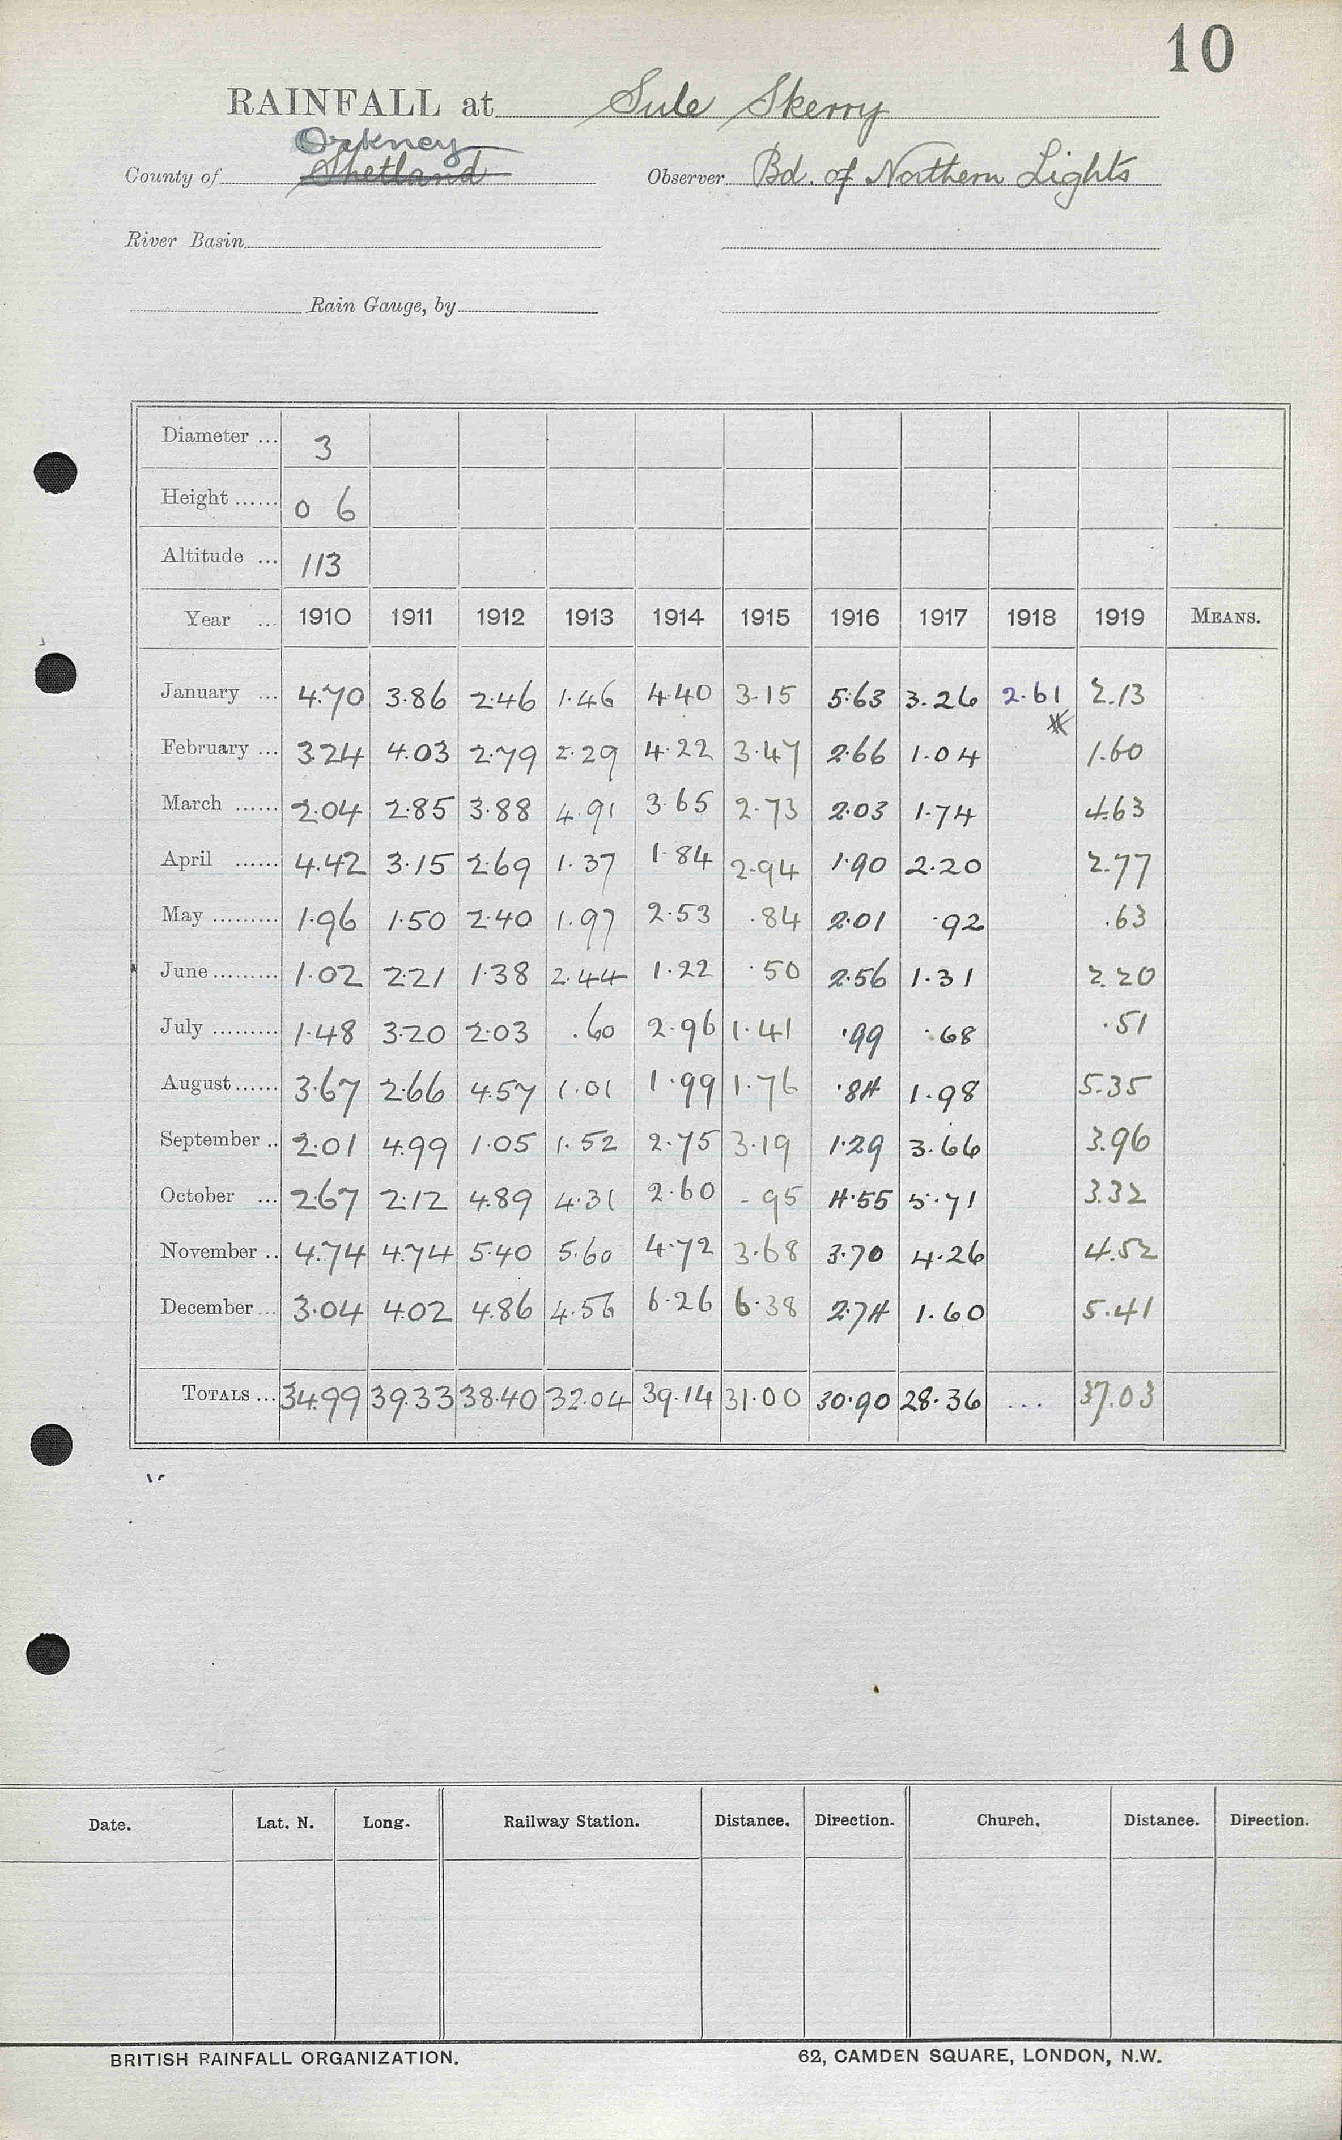 10
RAINFALL at Sule Skerry
Orkney
County of Shetland Observer Bd. of Northern Lights
River Basin
Rain Gauge, by
Diameter ... 3
Height ...... 0 6
Altitude ... 113
Year ... 1910 1911 1912 1913 1914 1915 1916 1917 1918 1919 MEANS.
January ... 4.70 3.86 2.46 1.46 4.40 3.15 5.63 3.26 2.61 2.13
February ... 3.24 4.03 2.79 2.29 4.22 3.47 2.66 1.04 1.60
March ...... 2.04 2.85 3.88 4.91 3.65 2.73 2.03 1.74 4.63
April ...... 4.42 3.15 2.69 1.37 1.84 2.94 1.90 2.20 2.77
May ......... 1.96 1.50 2.40 1.97 2.53 .84 2.01 .92 .63
June ......... 1.02 2.21 1.38 2.44 1.22 .50 2.56 1.31 2.20
July ......... 1.48 3.20 2.03 .60 2.96 1.41 .99 .68 .51
August ...... 3.67 2.66 4.57 1.01 1.99 1.76 .84 1.98 5.35
September .. 2.01 4.99 1.05 1.52 2.75 3.19 1.29 3.66 3.96
October ... 2.67 2.12 4.89 4.31 2.60 .95 4.55 5.71 3.32
November .. 4.74 4.74 5.40 5.60 4.72 3.68 3.70 4.26 4.52
December ... 3.04 4.02 4.86 4.56 6.26 6.38 2.74 1.60 5.41
TOTALS ... 34.99 39.33 38.40 32.04 39.14 31.00 30.90 28.36 ... 37.03
Date. Lat. N. Long. Railway Station. Distance. Direction. Church. Distance. Direction.
BRITISH RAINFALL ORGANIZATION. 62, CAMDEN SQUARE, LONDON, N.W.